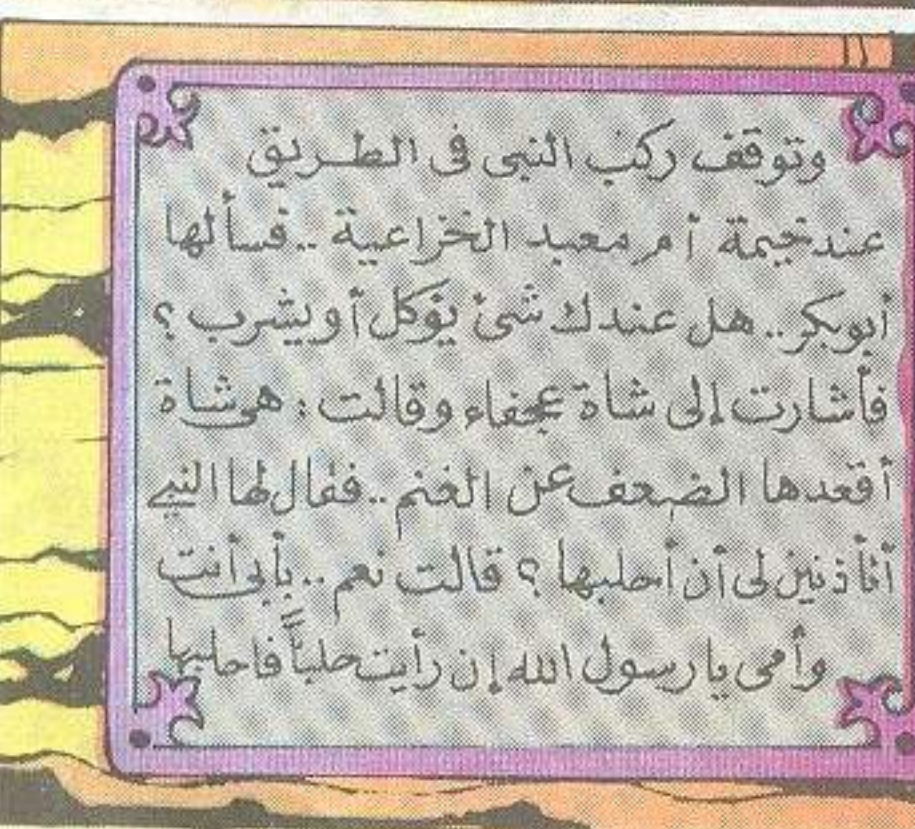 وتوقف ركب النبى فى الطريق
عند خيمة أم معبد الخزاعية .. فسألها
أبوبكر .. هل عندك شئ يؤكل أو يشرب ؟
فأشارت إلى شاة عجفاء وقالت : هى شاة
أقعدها الضعف عن الغنم .. فقال لها النبى
أتأذنين لى أن أحلبها ؟ قالت نعم .. بأبى أنت
وأمى يا رسول الله إن رأيت حلباً فاحلبها